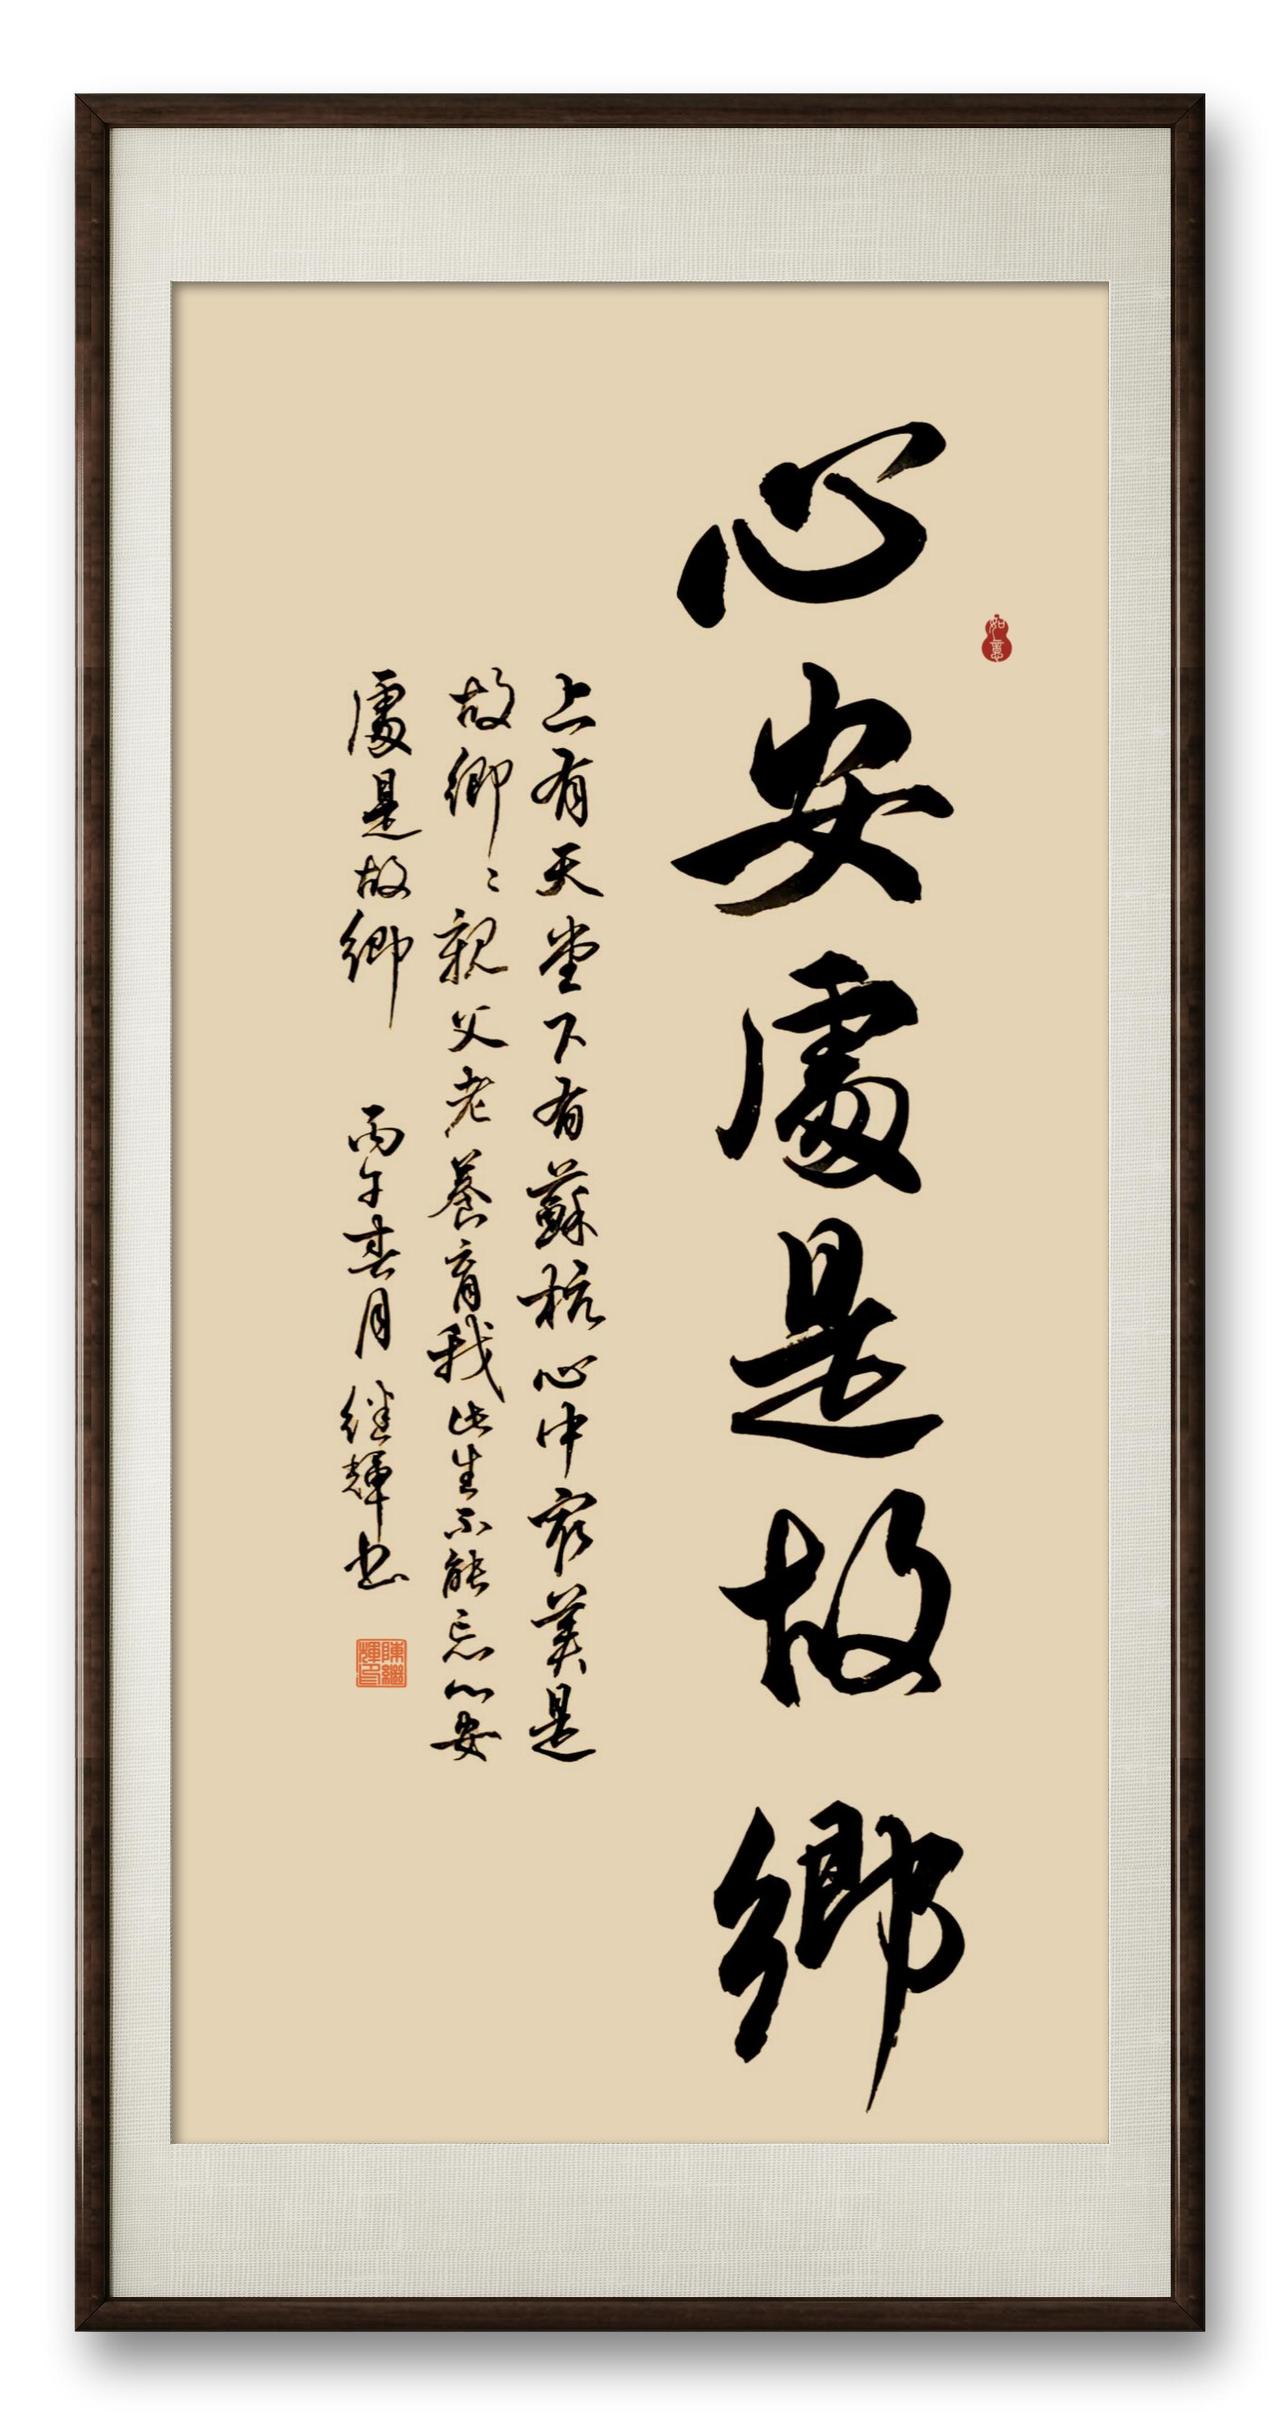 心安處是故鄉
如意
上有天堂下有蘇杭心中最美是
故鄉〻親父老養育我此生不能忘心安
處是故鄉 丙午春月 继輝书
陳繼輝印